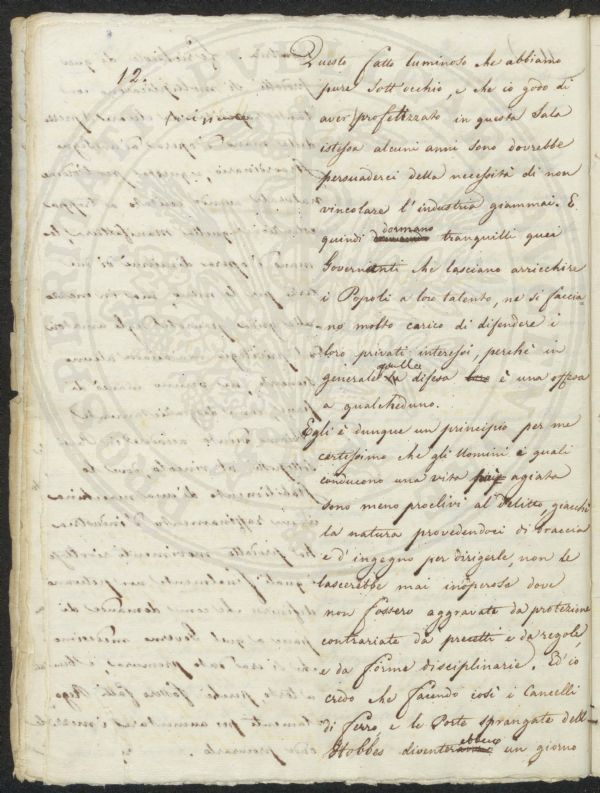 12.
Questo fatto luminoso che abbiamo
pure sott'occhio, e che io godo di
aver profetizzato in questa Sala
istessa alcuni anni sono dovrebbe
persuaderci della necessità di non
vincolare l'industria giammai. E
dormano
quindi tranquilli quei
Governanti che lasciano arricchire
i Popoli a loro talento, nè si faccia-
no molto carico di difendere i
loro privati interessi, perchè in
quella
generale la difesa loro è una offesa
a qualcheduno.
Egli è dunque un principio per me
certissimo che gli Uomini i quali
conducono una vita più agiata
sono meno proclivi al Delitto, giacchè
la natura provedendoci di braccia
e d'ingegno per dirigerle, non le
lascerebbe mai inoperose dove
non fossero aggravate da protezione
contrariate da precetti e da regole,
e da forme disciplinarie. Ed io
credo che facendo così i Cancelli
di ferro, e le Porte sprangate dell'
ebbero
Hobbes diventer un giorno
PROSPERITATI PUBLICAE